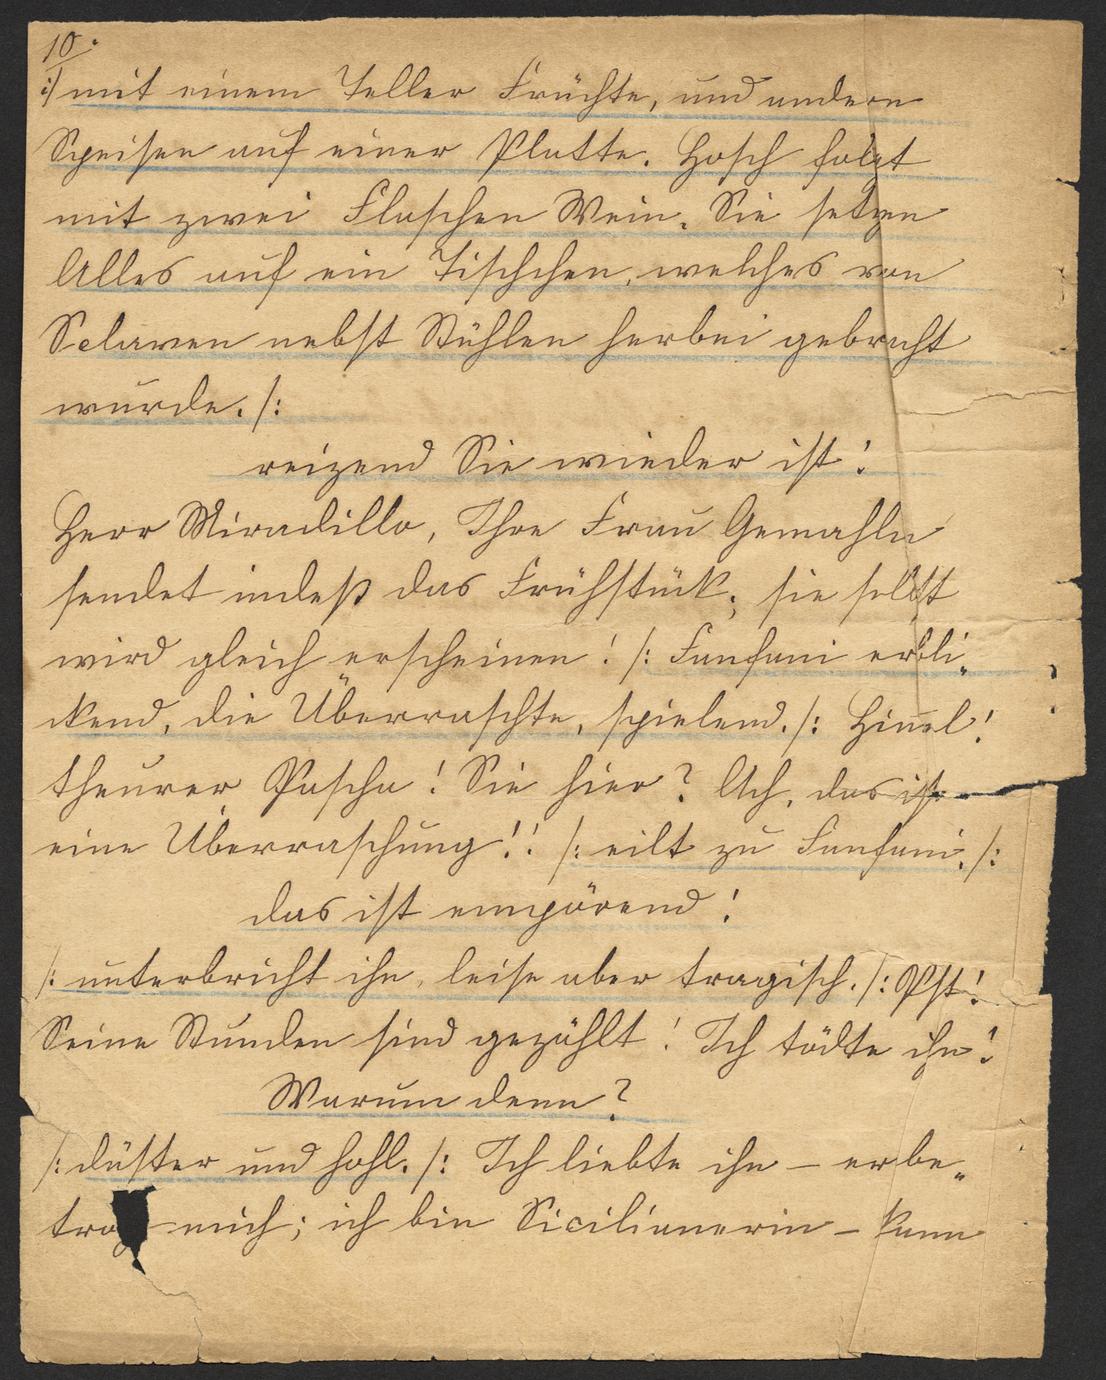 10.
:/ mit einem Teller Früchte, und andern
Speisen auf einer Platte. Hosch folgt
mit zwei Flaschen Wein. Sie setzen
Alles auf ein Tischchen, welches von
Sclaven nebst Stühlen herbei gebracht
wurde. /:
reizend Sie wieder ist!
Herr Miradillo, Ihre Frau Gemahln
sendet indeß das Frühstück; sie selbst
wird gleich erscheinen! /: Fanfani erbli„
ckend, die Überraschte, spielend. /: Him̅el!
theurer Pascha! Sie hier? Ach, das ist
eine Überraschung!! /: eilt zu Fanfani. /:
das ist empörend!
/: unterbricht ihn, leise aber tragisch. /: Pst!
Seine Stunden sind gezählt! Ich tödte ihn!
Warum denn?
/: düster und hohl. /: Ich liebte ihn – er be„
trog mich; ich bin Sicilianerin – kann